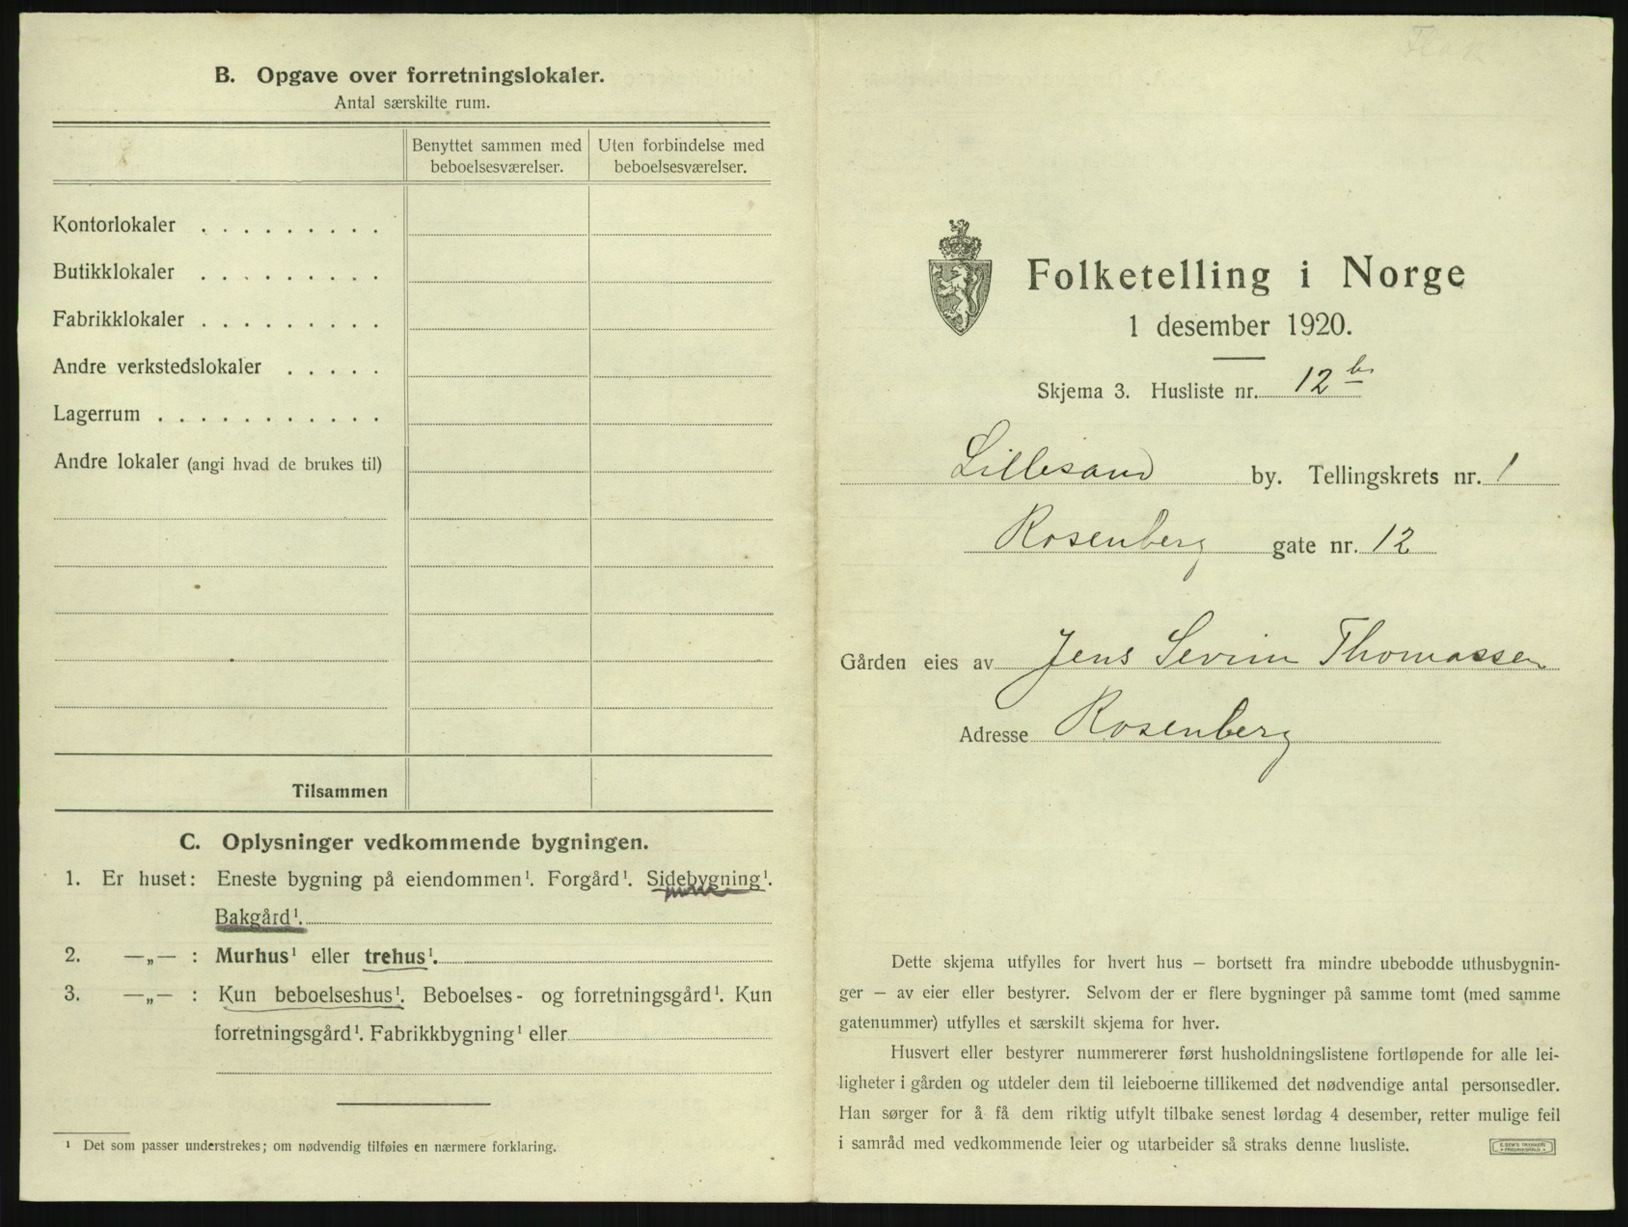 B. Opgave over forretningslokaler.
Antal særskilte rum.
Benyttet sammen med beboelsesværelser.
Uten forbindelse med beboelsesværelser.
Kontorlokaler . . . . . . . . .
Butikklokaler . . . . . . . . .
Fabrikklokaler . . . . . . . . .
Andre verkstedslokaler . . . . .
Lagerrum . . . . . . . . . . .
Andre lokaler (angi hvad de brukes til)
Tilsammen
C. Oplysninger vedkommende bygningen.
1. Er huset: Eneste bygning på eiendommen¹. Forgård¹. Sidebygning¹.
Bakgård¹.
2. —„— : Murhus¹ eller trehus¹.
3. —„— : Kun beboelseshus¹. Beboelses- og forretningsgård¹. Kun
forretningsgård¹. Fabrikkbygning¹ eller
¹ Det som passer understrekes; om nødvendig tilføies en nærmere forklaring.
Folketelling i Norge
1 desember 1920.
Skjema 3. Husliste nr. 12
Lillesand by. Tellingskrets nr. 1
Rosenberg gate nr. 12
Gården eies av Jens Severin Thomassen
Adresse Rosenberg
Dette skjema utfylles for hvert hus – bortsett fra mindre ubebodde uthusbygnin-
ger – av eier eller bestyrer. Selvom der er flere bygninger på samme tomt (med samme
gatenummer) utfylles et særskilt skjema for hver.
Husvert eller bestyrer nummererer først husholdningslistene fortløpende for alle lei-
ligheter i gården og utdeler dem til leieboerne tillikemed det nødvendige antal personsedler.
Han sørger for å få dem riktig utfylt tilbake senest lørdag 4 desember, retter mulige feil
i samråd med vedkommende leier og utarbeider så straks denne husliste.